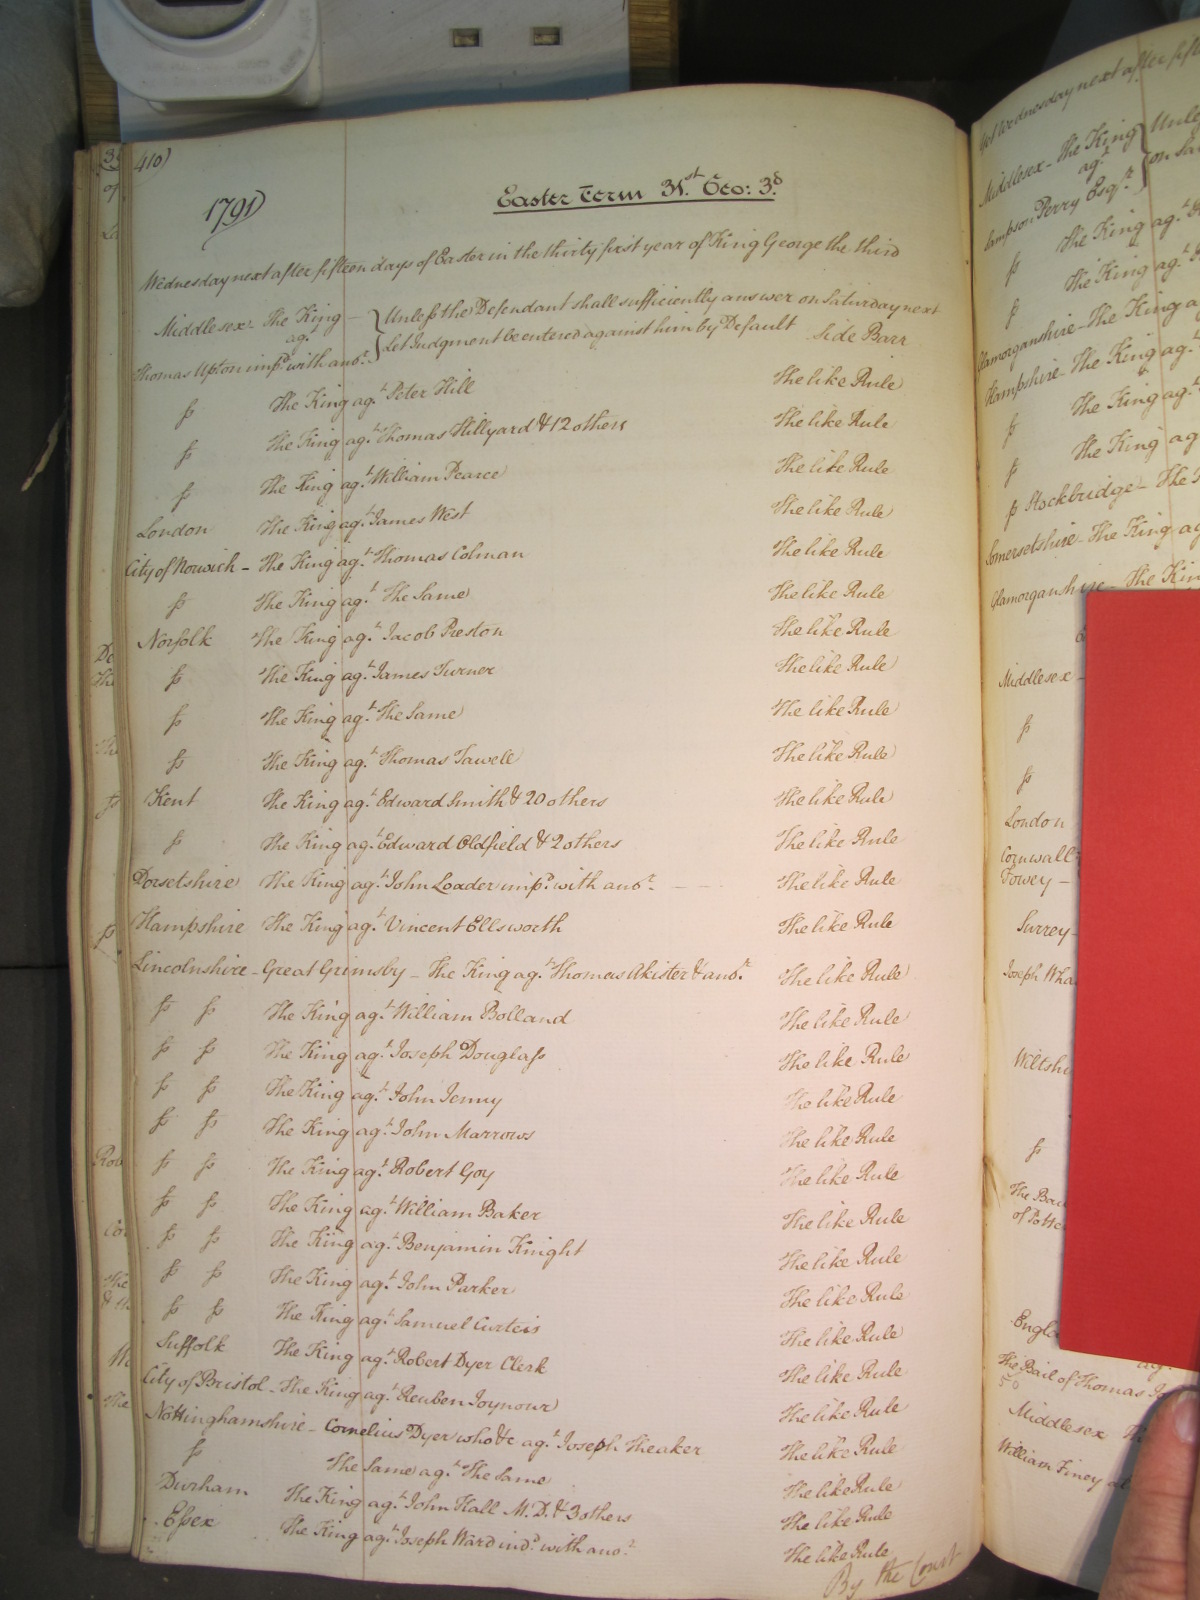 410)
1791
Easter Term 31.st Geo: 3.d
Wednesday next after fifteen days of Easter in the thirty first year of King George the third
Middlesex - The King
ag.t
Thomas Upton imp.d with ano.r
Unless the Defendant shall sufficiently answer on Saturday next
Let Judgment be entered against him by Default Side Barr
ss The King ag.t Peter Hill The like Rule
ss The King ag.t Thomas Hillyard & 12 others The like Rule
ss The King ag.t William Pearce The like Rule
London The King ag.t James West The like Rule
City of Norwich - The King ag.t Thomas Colman The like Rule
ss The King ag.t The Same The like Rule
Norfolk The King ag.t Jacob Preston The like Rule
ss The King ag.t James Turner The like Rule
ss The King ag.t The Same The like Rule
ss The King ag.t Thomas Tawell The like Rule
Kent The King ag.t Edward Smith & 20 others The like Rule
ss The King ag.t Edward Oldfield & 2 others The like Rule
Dorsetshire The King ag.t John Loader imp.d with ano.r The like Rule
Hampshire The King ag.t Vincent Ellsworth The like Rule
Lincolnshire - Great Grimsby - The King ag.t Thomas Akister & ano.r The like Rule
ss ss The King ag.t William Bolland The like Rule
ss ss The King ag.t Joseph Douglass The like Rule
ss ss The King ag.t John Jenny The like Rule
ss ss The King ag.t John Marrows The like Rule
ss ss The King ag.t Robert Goy The like Rule
ss ss The King ag.t William Baker The like Rule
ss ss The King ag.t Benjamin Knight The like Rule
ss ss The King ag.t John Parker The like Rule
ss ss The King ag.t Samuel Curteis The like Rule
Suffolk The King ag.t Robert Dyer Clerk The like Rule
City of Bristol - The King ag.t Reuben Joynour The like Rule
Nottinghamshire - Cornelius Dyer who &c ag.t Joseph Theaker The like Rule
ss The Same ag.t The Same The like Rule
Durham The King ag.t John Hall M.D. & 3 others The like Rule
Essex The King ag.t Joseph Ward ind.d with ano.r The like Rule
By the Court
Wednesday next after
Middlesex - The King
ag.t
Sampson Perry Esq.r
ss The King ag.t
ss The King ag.t
Glamorganshire - The King
Hampshire - The King ag.t
ss The King ag.t
ss The King ag
ss Stockbridge - The
Somersetshire - The King ag
Glamorganshire - The King
Middlesex -
ss
ss
London
Cornwall
Fowey -
Surrey -
Joseph
ss
of
The Bail of Thomas
50
Middlesex
William Finey